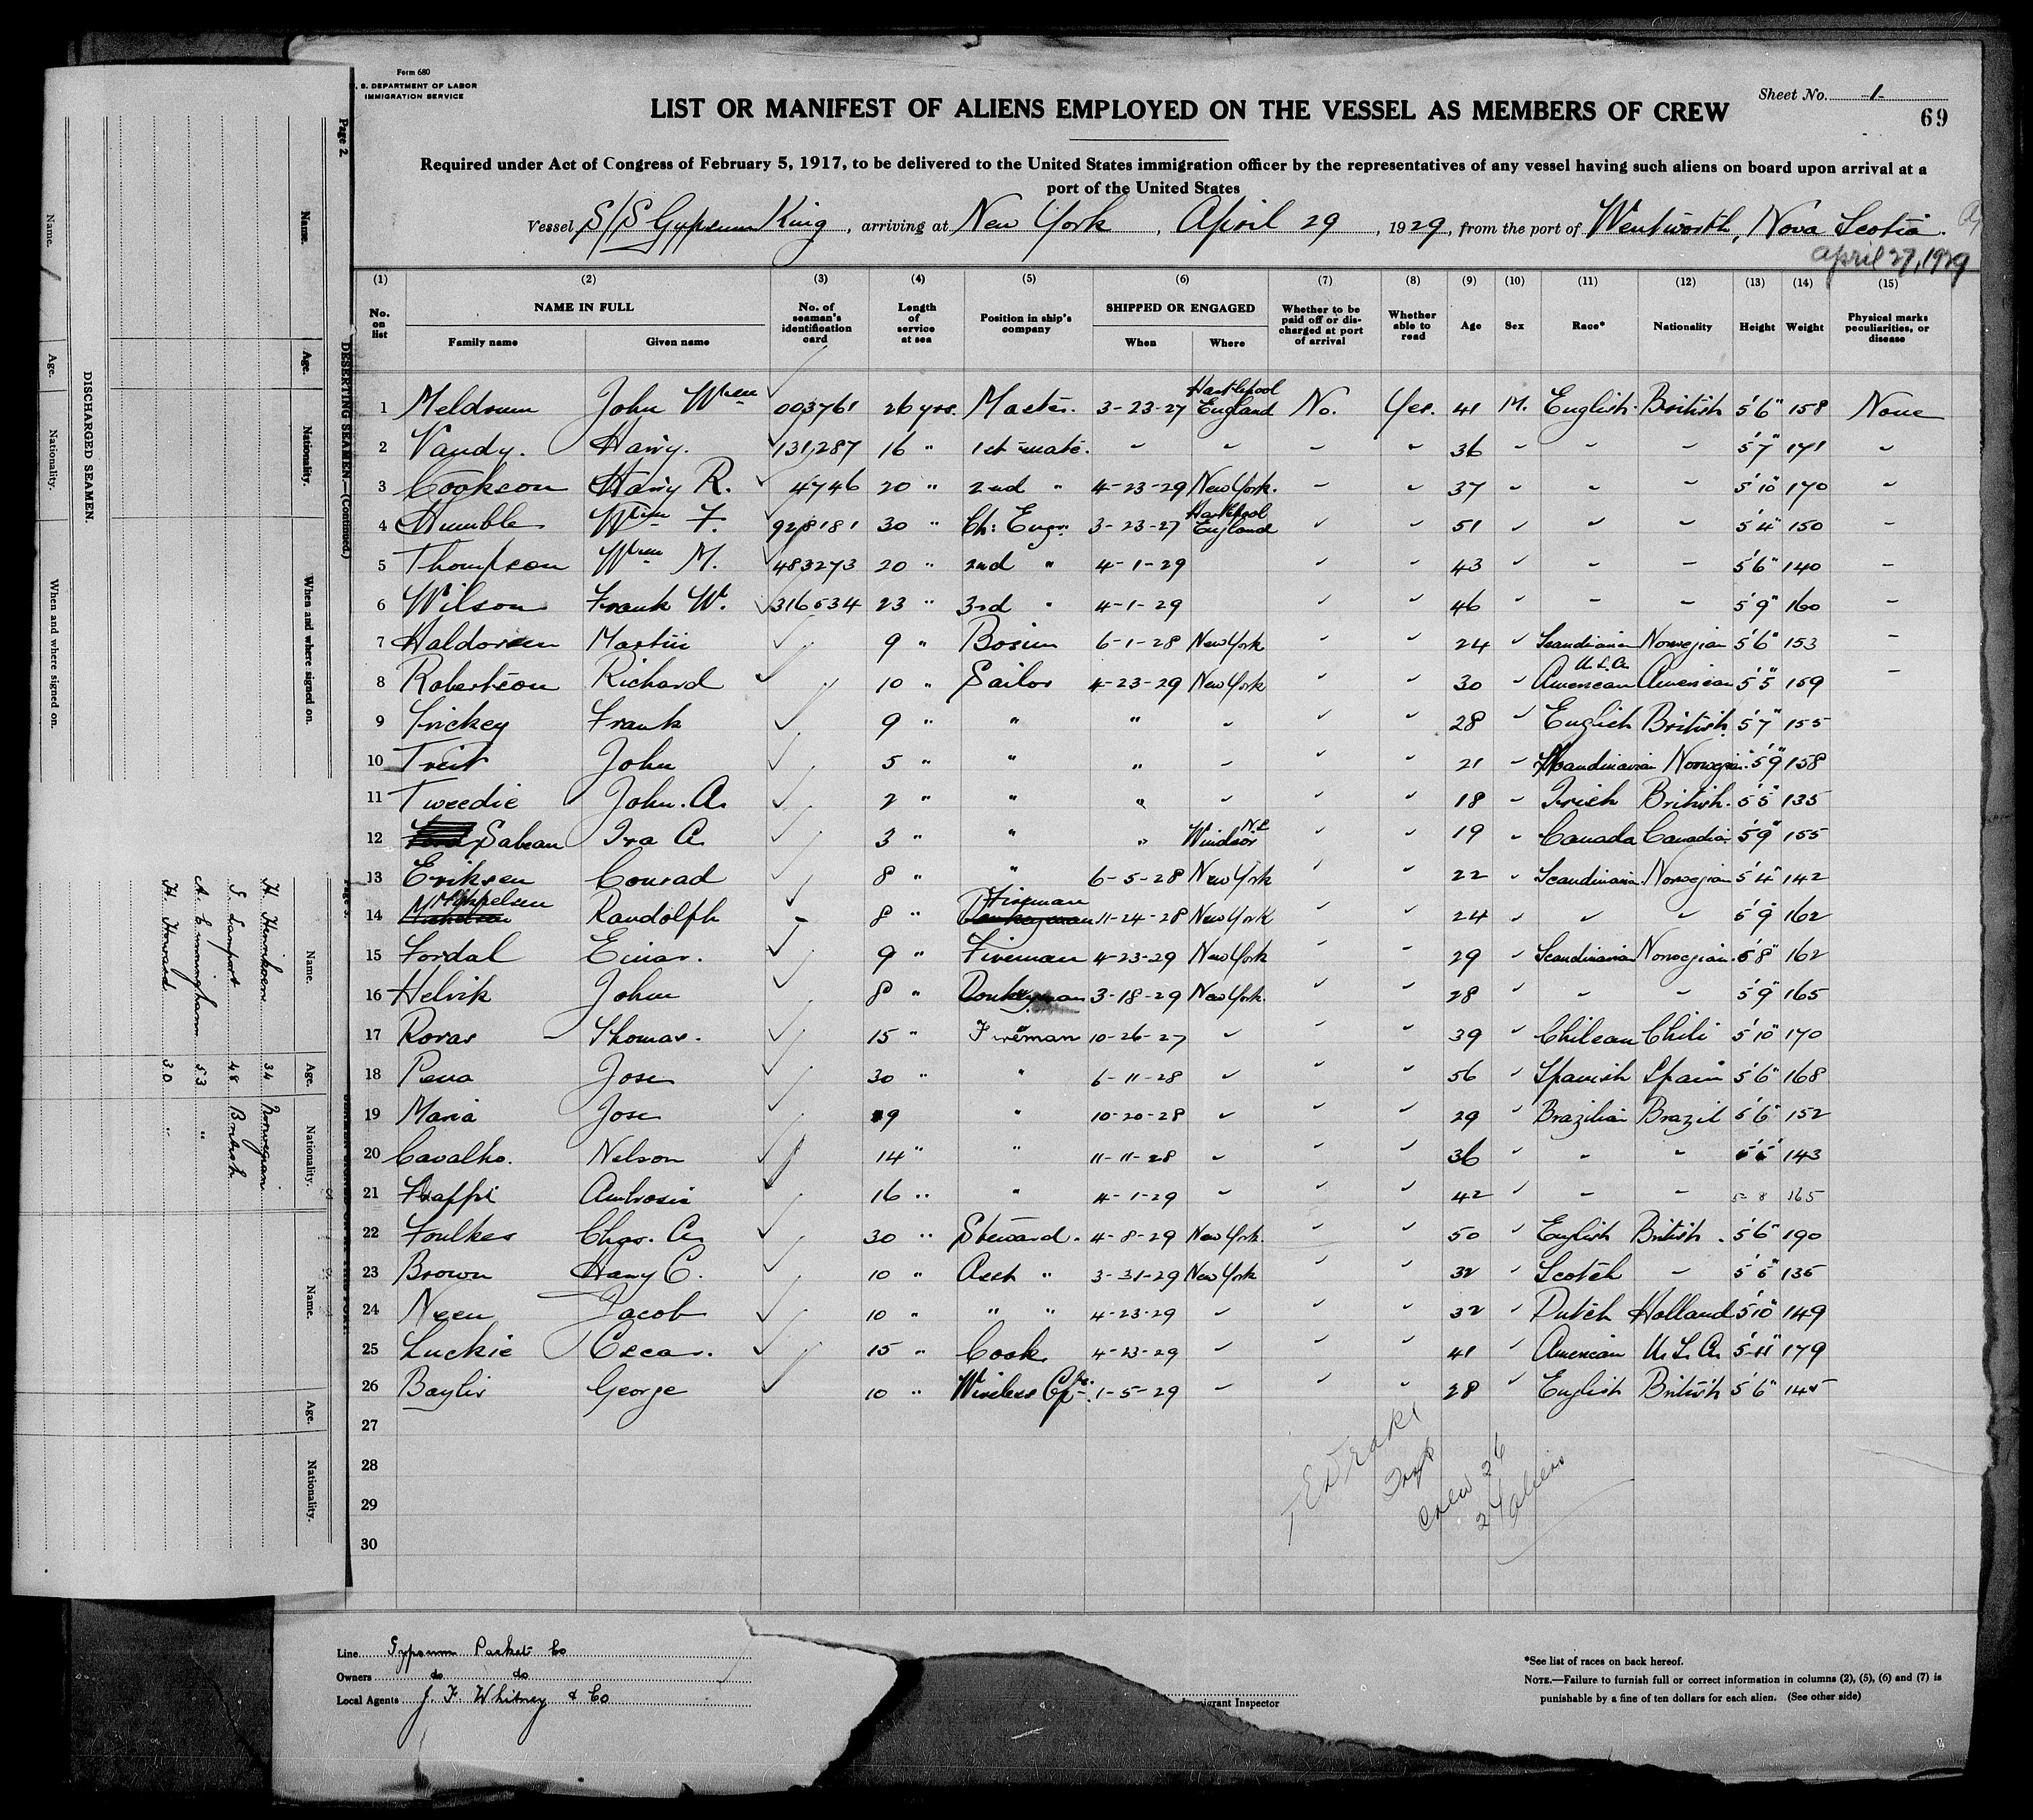 Form 680
U. S. DEPARTMENT OF LABOR
IMMIGRATION SERVICE
Sheet No. 1
69
LIST OR MANIFEST OF ALIENS EMPLOYED ON THE VESSEL AS MEMBERS OF CREW
Required under Act of Congress of February 5, 1917, to be delivered to the United States immigration officer by the representatives of any vessel having such aliens on board upon arrival at a
port of the United States
Vessel S/S Gypsum King, arriving at New York, April 29, 1929, from the port of Wentworth, Nova Scotia.
April 27, 1929
(1) (2) (3) (4) (5) (6) (7) (8) (9) (10) (11) (12) (13) (14) (15)
No. on list NAME IN FULL Family name Given name No. of seaman's identification card Length of service at sea Position in ship's company SHIPPED OR ENGAGED When Where Whether to be paid off or discharged at port of arrival Whether able to read Age Sex Race* Nationality Height Weight Physical marks peculiarities, or disease
1 Meldrum John Wm 003761 26 yrs. Master. 3-23-27 Hartlepool England No. Yes. 41 M. English British 5'6" 158 None
2 Vandy. Harry. 131287 16 " 1st mate. 36 5'7" 171
3 Cookson Harry R. 4746 20 " 2nd " 4-23-29 New York. 37 5'10" 170
4 Humble Wm F. 928181 30 " Ch: Engr. 3-23-27 Hartlepool England 51 5'4" 150
5 Thompson Wm M. 483273 20 " 2nd " 4-1-29 43 5'6" 140
6 Wilson Frank W. 316534 23 " 3rd " 4-1-29 46 5'9" 160
7 Haldorsen Martin 9 " Bosun 6-1-28 New York 24 Scandinavian Norwegian 5'6" 153
8 Robertson Richard 10 " Sailor 4-23-29 New York 30 U.S.A. American American 5'5" 159
9 Frickey Frank 9 " " " 28 English British 5'7" 155
10 Treit John 5 " " " 21 Scandinavian Norwegian 5'9" 158
11 Tweedie John. A. 2 " " " 18 Irish British. 5'5" 135
12 Sabean Ira A. 3 " " " Windsor 19 Canada Canadian 5'9" 155
13 Eriksen Conrad 8 " " 6-5-28 New York 22 Scandinavian Norwegian 5'4" 142
14 Randolph 8 " Fireman 11-24-28 New York 24 5'9" 162
15 Fordal Einar. 9 " Fireman 4-23-29 New York 29 Scandinavian Norwegian 5'8" 162
16 Helvik John 8 " Donkeyman 3-18-29 New York. 28 5'9" 165
17 Rovas Thomas. 15 " Fireman 10-26-27 39 Chilean Chili 5'10" 170
18 Pena Jose 30 " " 6-11-28 56 Spanish Spain 5'6" 168
19 Maria Jose 9 " 10-20-28 29 Brazilian Brazil 5'6" 152
20 Cavalho. Nelson 14 " " 11-11-28 36 143
21 Ambrosio 16 " " 4-1-29 42 165
22 Foulkes Chas. A. 30 " Steward. 4-8-29 New York. 50 English British. 5'6" 190
23 Brown Harry C. 10 " Asst " 3-31-29 New York 32 Scotch 135
24 Neen Jacob 10 " " " 4-23-29 32 Dutch Holland 5'10" 149
25 Luckie Oscar. 15 " Cook 4-23-29 41 American U.S.A. 5-11" 179
26 Baylis George 10 " Wireless Op. 1-5-29 28 English British 5'6" 145
27
28
29
30
Crew 26
24 aliens
Line Gypsum Packet Co
Owners do do
Local Agents J F Whitney & Co
Immigrant Inspector
*See list of races on back hereof.
NOTE.—Failure to furnish full or correct information in columns (2), (5), (6) and (7) is
punishable by a fine of ten dollars for each alien. (See other side)
Page 2.
DESERTING SEAMEN.—(Continued.)
Name. Age. Nationality. When and where signed on.
DISCHARGED SEAMEN.
Name. Age. Nationality. When and where signed on.
Name. Age. Nationality. Name. Age. Nationality.
H. Henriksen 34 Norwegian
J. Lamport 48 British
A. Cunningham 53 "
H. Howard 30 "